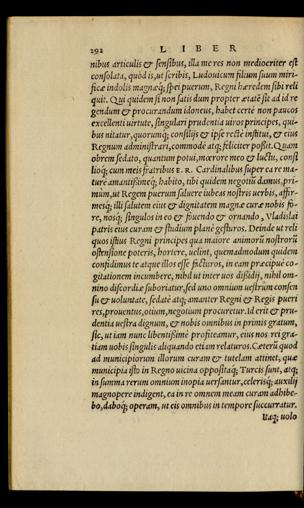 292 LIBER
nibus articulis & sensibus, illa me res non mediocriter est
consolata, quòd is, ut scribis, Ludouicum filium suum miri-
ficæ indolis magnæq́; spei puerum, Regni hæredem sibi reli
quit. Qui quidem si non satis dum propter ætatē sit ad id re
gendum & procurandum idoneus, habet certè non paucos
excellenti uirtute, singulari prudentia uiros principes, qui-
bus nitatur, quorumq́; consilijs & ipse rectè institui, & eius
Regnum administrari, commodè atq; feliciter poßit. Quam
obrem sedato, quantum potui, mœrore meo & luctu, consi
lioq́; cum meis fratribus E. R. Cardinalibus super ea re ma-
turè amantißimeq́; habito, tibi quidem negotiū damus, pri-
mùm, ut Regem puerum saluere iubeas nostris uerbis, affir-
mesq́; illi salutem eius & dignitatem magnæ curæ nobis fo-
re, nosq́; singulos in eo & fouendo & ornando, Vladislai
patris eius curam & studium planè gesturos. Deinde ut reli
quos istius Regni principes qua maiore animorū nostrorū
ostensione poteris, hortere, uelint, quemadmodum quidem
confidimus te atque illos esse facturos, in eam præcipuè co-
gitationem incumbere, nihil ut inter uos dißidij, nihil om-
nino discordiæ suboriatur. sed uno omnium uestrûm consen
su & uoluntate, sedatè atq; amanter Regni & Regis pueri
res, prouentus, otium, negotium procuretur. Id erit & pru-
dentia uestra dignum, & nobis omnibus in primis gratum,
sic, ut iam nunc libentißimè profiteamur, eius nos rei gra-
tiam nobis singulis aliquando etiam relaturos. Cæterū quod
ad municipiorum illorum curam & tutelam attinet, quæ
municipia isto in Regno uicina oppositaq́; Turcis sunt, atq;
in summa rerum omnium inopia uersantur, celerisq́; auxilij
magnopere indigent, ea in re omnem meam curam adhibe-
bo, daboq́; operam, ut eis omnibus in tempore succurratur.
Itaq; uolo